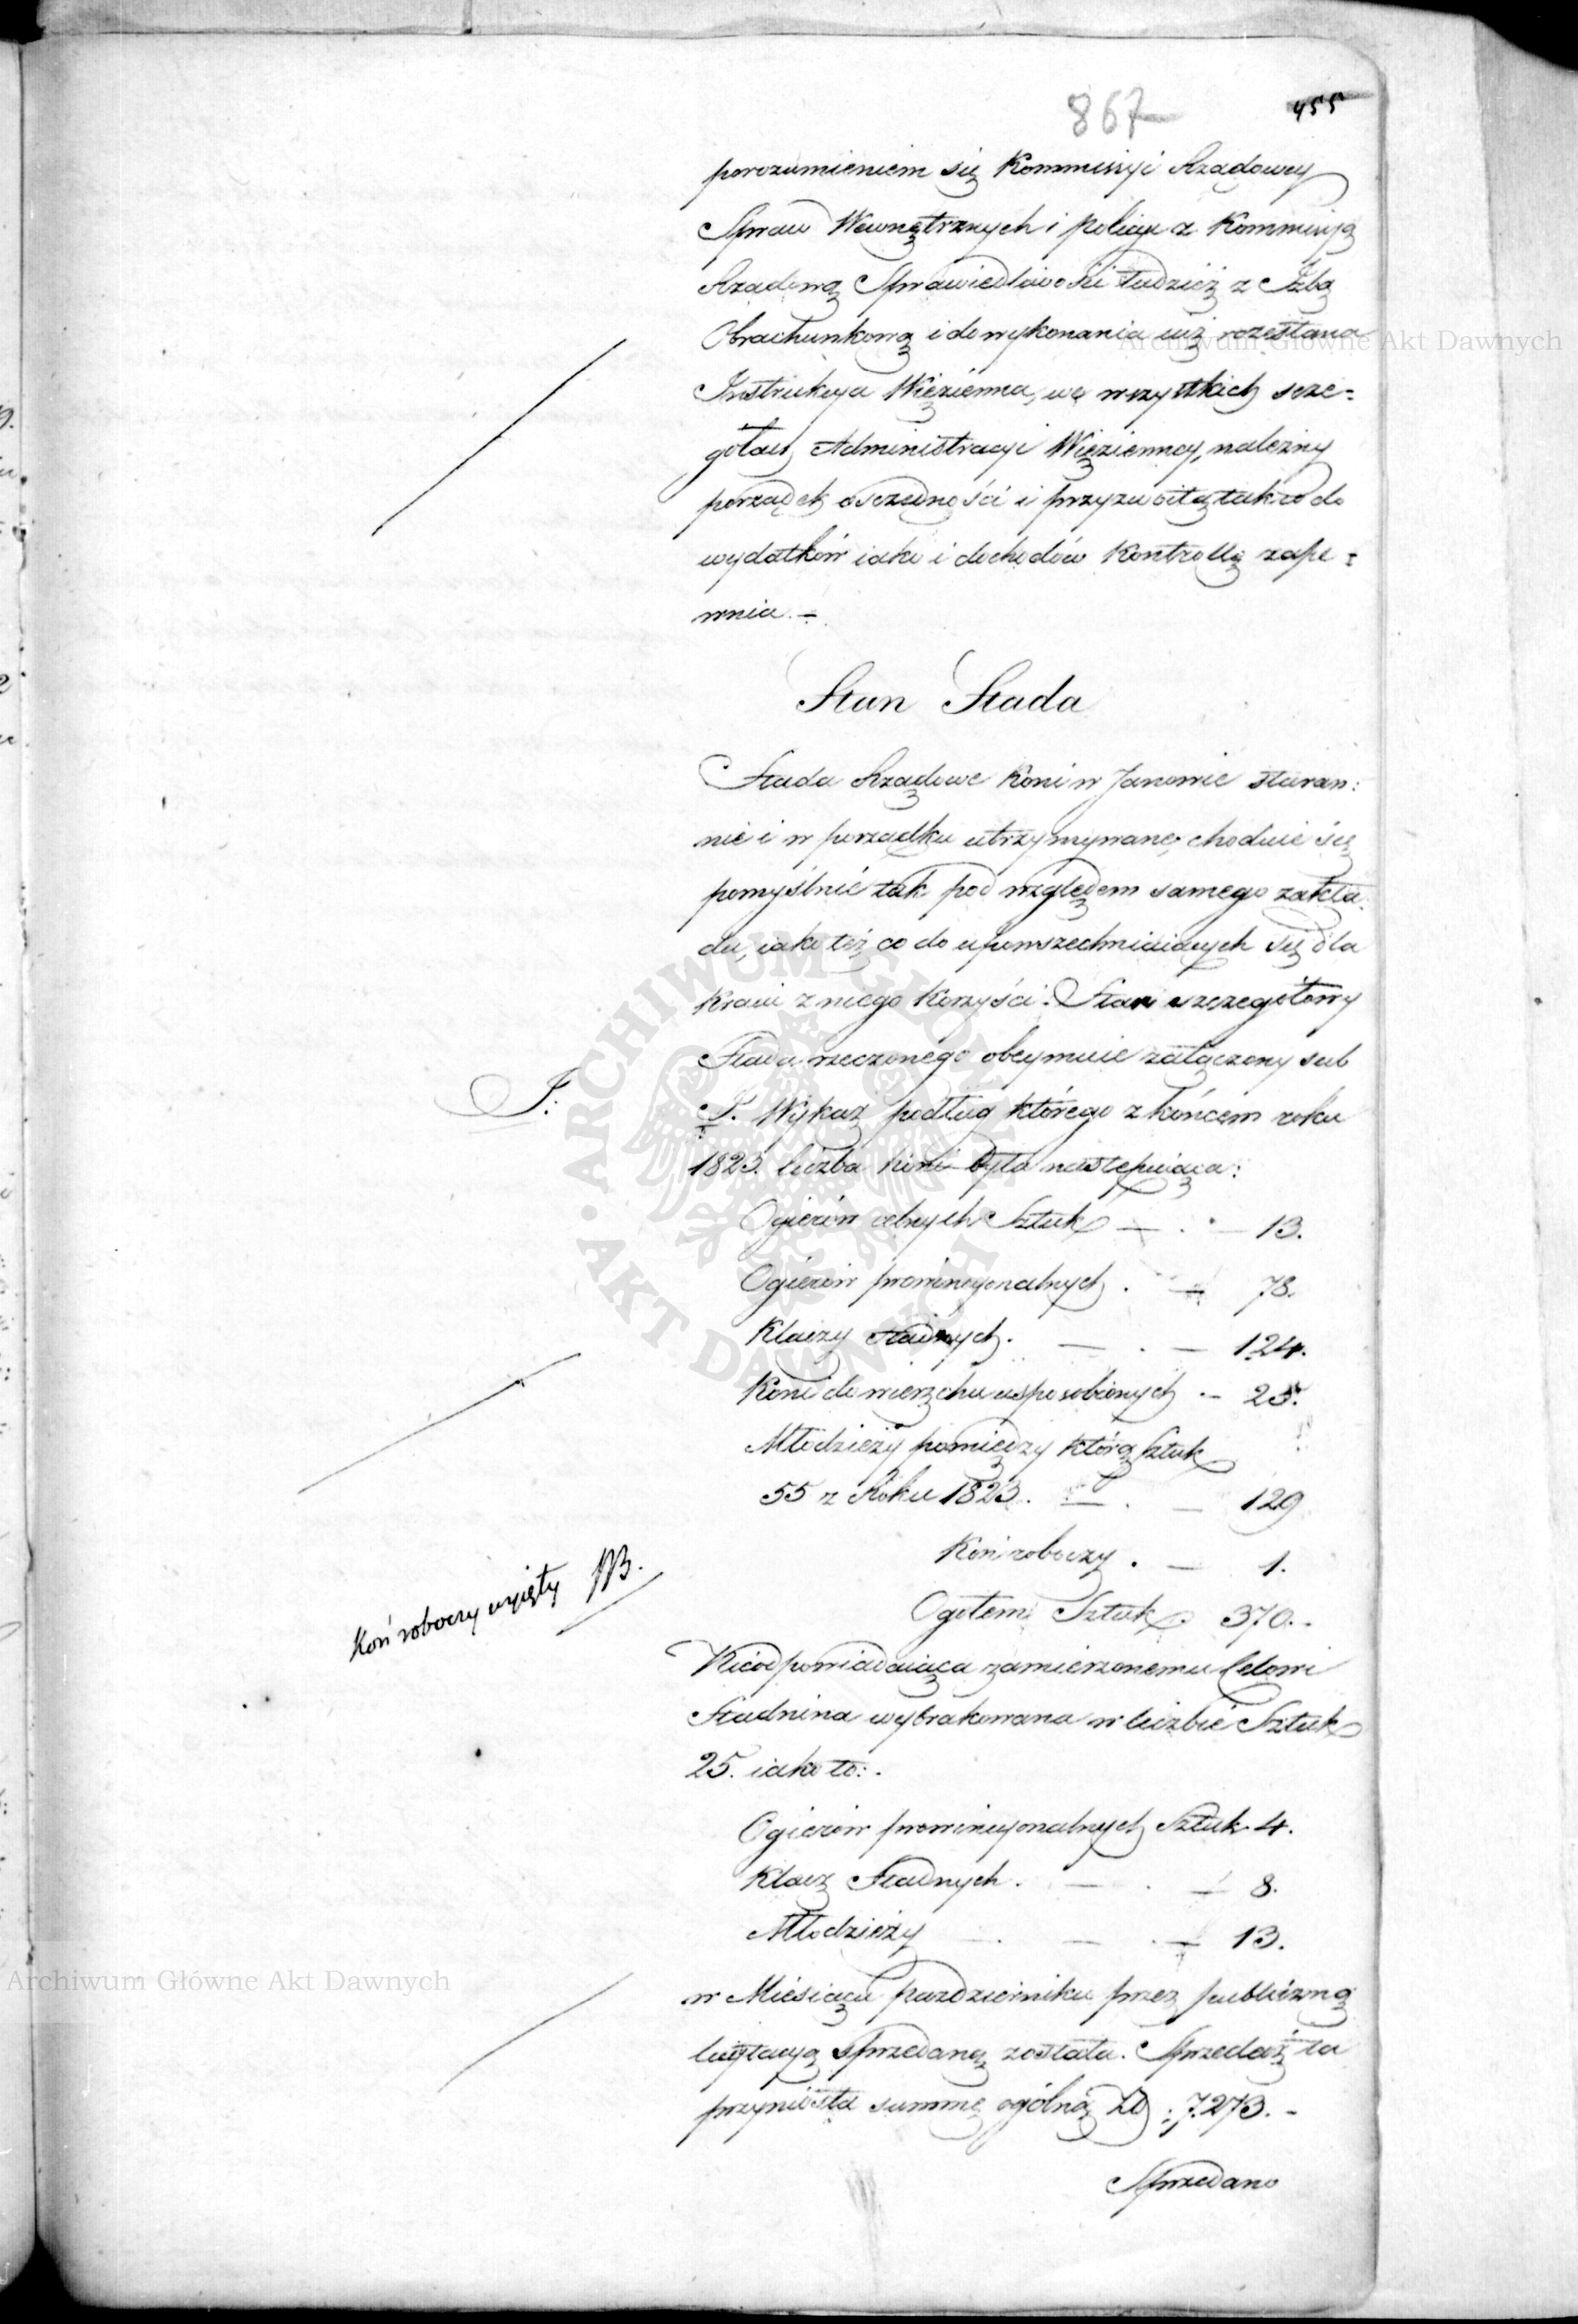 867
455
porozumieniem się Kommissyi Rządowey
Spraw Wewnętrznych i policyi z Kommissyą
Rządową Sprawiedliwości tudzież z Izbą
Obrachunkową i do wykonania iuż rozesłana
Instrukcya Więzienna, we wszystkich szcze-
gółach Administracyi Więzienney, należny
porządek oszczędności i przyzwoitą tak co do
wydatków iako i dochodów Kontrollę zape-
wnia.-
Stan Stada
Stado Rządowe Koni w Janowie staran:
nie i w porządku utrzymywane, chodnie się
pomyślnie tak pod względem samego zakła-
du, iako też co do upowszechniaiących się dla
Kraiu z niego Korzyści. Stan szczegółowy
Stada rzeczonego obeymuie załączony sub
J:
J. Wykaz podług którego z końcem roku
1823. liczba koni była następuiąca:
Ogierów celnych Sztuk — . — 13.
Ogierów prowincyonalnych . — 78.
Klaczy stadnych. — . — 124.
Koni do wierzchu usposobionych . — 25.
Młodzieży pomiędzy którą Sztuk
55 z Roku 1823. — . — 129
Koń roboczy . — 1.
Koń roboczy wyięty NB.
Ogółem Sztuk 370.-
Nieodpowiadaiąca zamierzonemu Celowi
Stadnina wybrakowana w liczbie Sztuk
25. iako to:.
Ogierów prowincyonalnych Sztuk 4.
Klacz Stadnych . — . — 8.
Młodzieży . — . — 13.
w Miesiącu październiku przez publiczną
licytacyą sprzedaną została. Sprzedaż ta
przyniosła summę ogólną Zł: 7.273.-
Sprzedano
Archiwum Główne Akt Dawnych
Archiwum Główne Akt Dawnych
ARCHIWUM GŁÓWNE • AKT DAWNYCH •